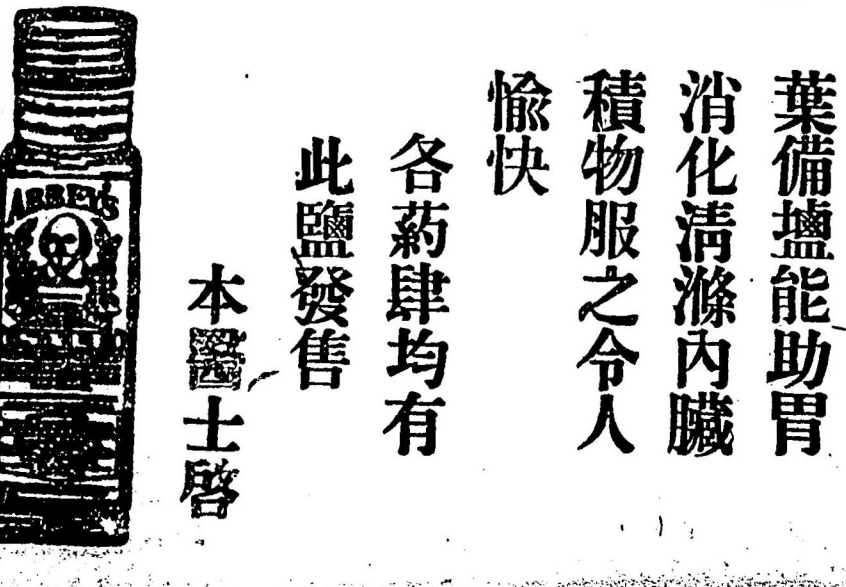 葉備塩能助胃
消化清滌內臟
積物服之令人
愉快
各葯肆均有
此鹽發售
本醫士啓
ABBEY'S